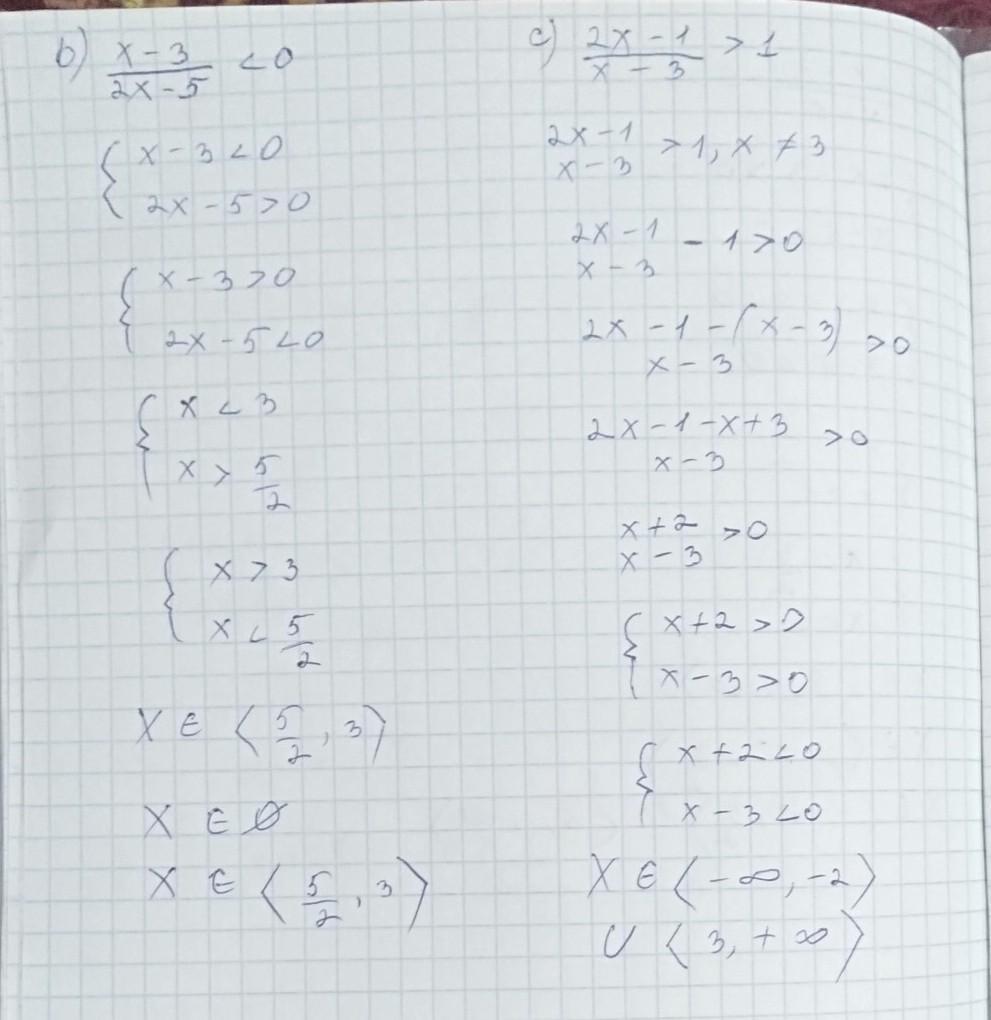 b) x-3 < 0
2x-5
{ x-3<0
2x-5>0
{ x-3>0
2x-5<0
{ x < 3
x > 5/2
{ x > 3
x < 5/2
X ∈ ⟨5/2, 3⟩
X ∈ ∅
X ∈ ⟨5/2, 3⟩
c) 2x-1 > 1
x-3
2x-1 > 1, x ≠ 3
x-3
2x-1 - 1 > 0
x-3
2x-1-(x-3) > 0
x-3
2x-1-x+3 > 0
x-3
x+2 > 0
x-3
{ x+2 > 0
x-3 > 0
{ x+2 < 0
x-3 < 0
X ∈ ⟨-∞, -2⟩
∪ ⟨3, +∞⟩